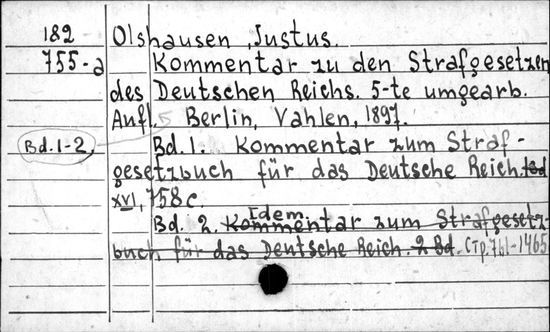 182 Olshausen, Justus.
755-a Kommentar zu den Strafgesetzen
des Deutschen Reichs. 5-te umgearb.
Aufl. 5 Berlin, Vahlen, 1897.
Bd. 1-2. Bd. 1. Kommentar zum Straf-
gesetzbuch für das Deutsche Reich. 1 Bd
XVI, 758 c.
Idem.
Bd. 2. Kommentar zum Strafgesetz-
buch für das Deutsche Reich. 2 Bd. Стр. 761-1465